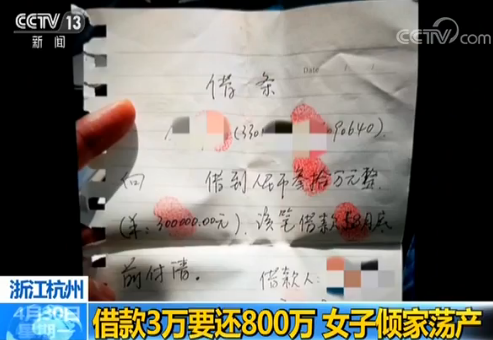 CCTV 13
新闻
CCTV.com
Date
借条
(330
090640)
向 借到人民币叁拾万元整
(羊：300000.00元)，该笔借款
月底
前付清。 借款人：
浙江杭州
4月30日
星期一
借款3万要还800万 女子倾家荡产